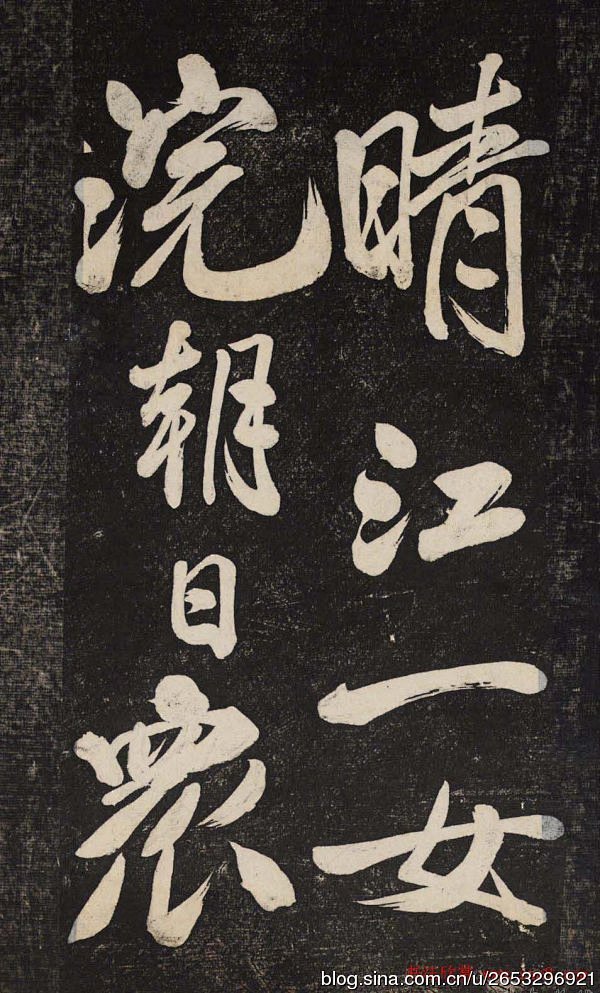 晴江一女
浣朝日衆
blog.sina.com.cn/u/2653296921